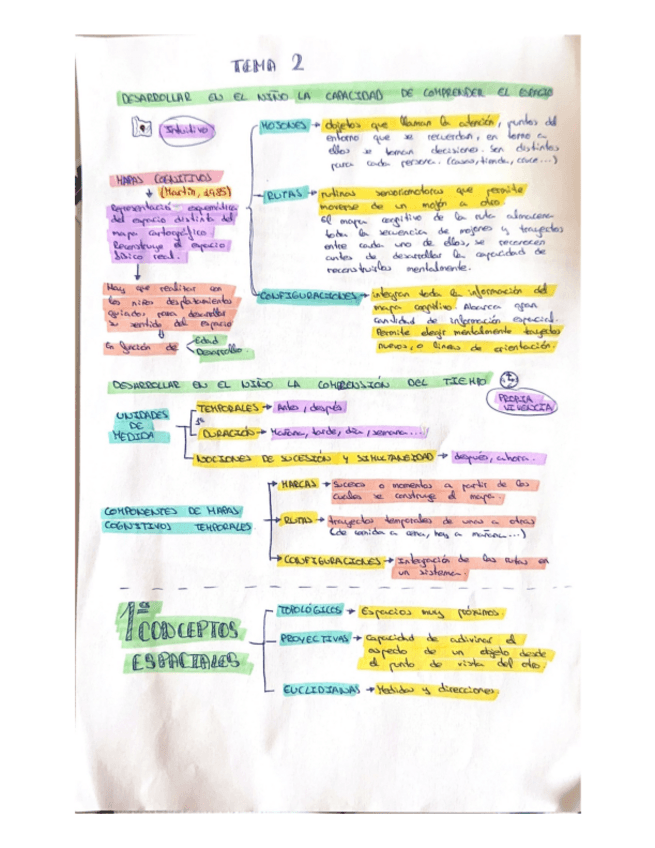 TEMA 2
DESARROLLAR EN EL NIÑO LA CAPACIDAD DE COMPRENDER EL ESPACIO
Intuitivo
MAPAS COGNITIVOS
(Martín, 1985)
Representación esquemática
del espacio distinta del
mapa cartográfico
Reconstruye el espacio
físico real.
Hay que realizar con
los niños desplazamientos
guiados para desarrollar
su sentido del espacio
En función de
Edad
Desarrollo.
MOJONES → objetos que llaman la atención, puntos del
entorno que se recuerdan, en torno a
ellos se toman decisiones. Son distintos
para cada persona. (casas, tienda, cruce...)
RUTAS → rutinas sensoriomotoras que permite
moverse de un mojón a otro.
El mapa cognitivo de la ruta almacena
toda la secuencia de mojones y trayectos
entre cada uno de ellos, se reconocen
antes de desarrollar la capacidad de
reconstruirlos mentalmente.
CONFIGURACIONES → integran toda la información del
mapa cognitivo. Abarca gran
cantidad de información espacial.
Permite elegir mentalmente trayectos
nuevos, o líneas de orientación.
DESARROLLAR EN EL NIÑO LA COMPRENSIÓN DEL TIEMPO
PROPIA
VIVENCIA
UNIDADES
DE
MEDIDA
TEMPORALES → Antes, después
1º
DURACIÓN → Mañana, tarde, día, semana...
NOCIONES DE SUCESIÓN Y SIMULTANEIDAD → después, ahora.
COMPONENTES DE MAPAS
COGNITIVOS TEMPORALES
MARCAS → Sucesos o momentos a partir de los
cuales se construye el mapa.
RUTAS → trayectos temporales de unos a otros
(de comida a cena, hoy a mañana...)
CONFIGURACIONES → Integración de las rutas en
un sistema.
1os CONCEPTOS
ESPACIALES
TOPOLÓGICOS → Espacios muy próximos
PROYECTIVAS → Capacidad de adivinar el
aspecto de un objeto desde
el punto de vista del otro.
EUCLIDIANAS → Medidas y direcciones.